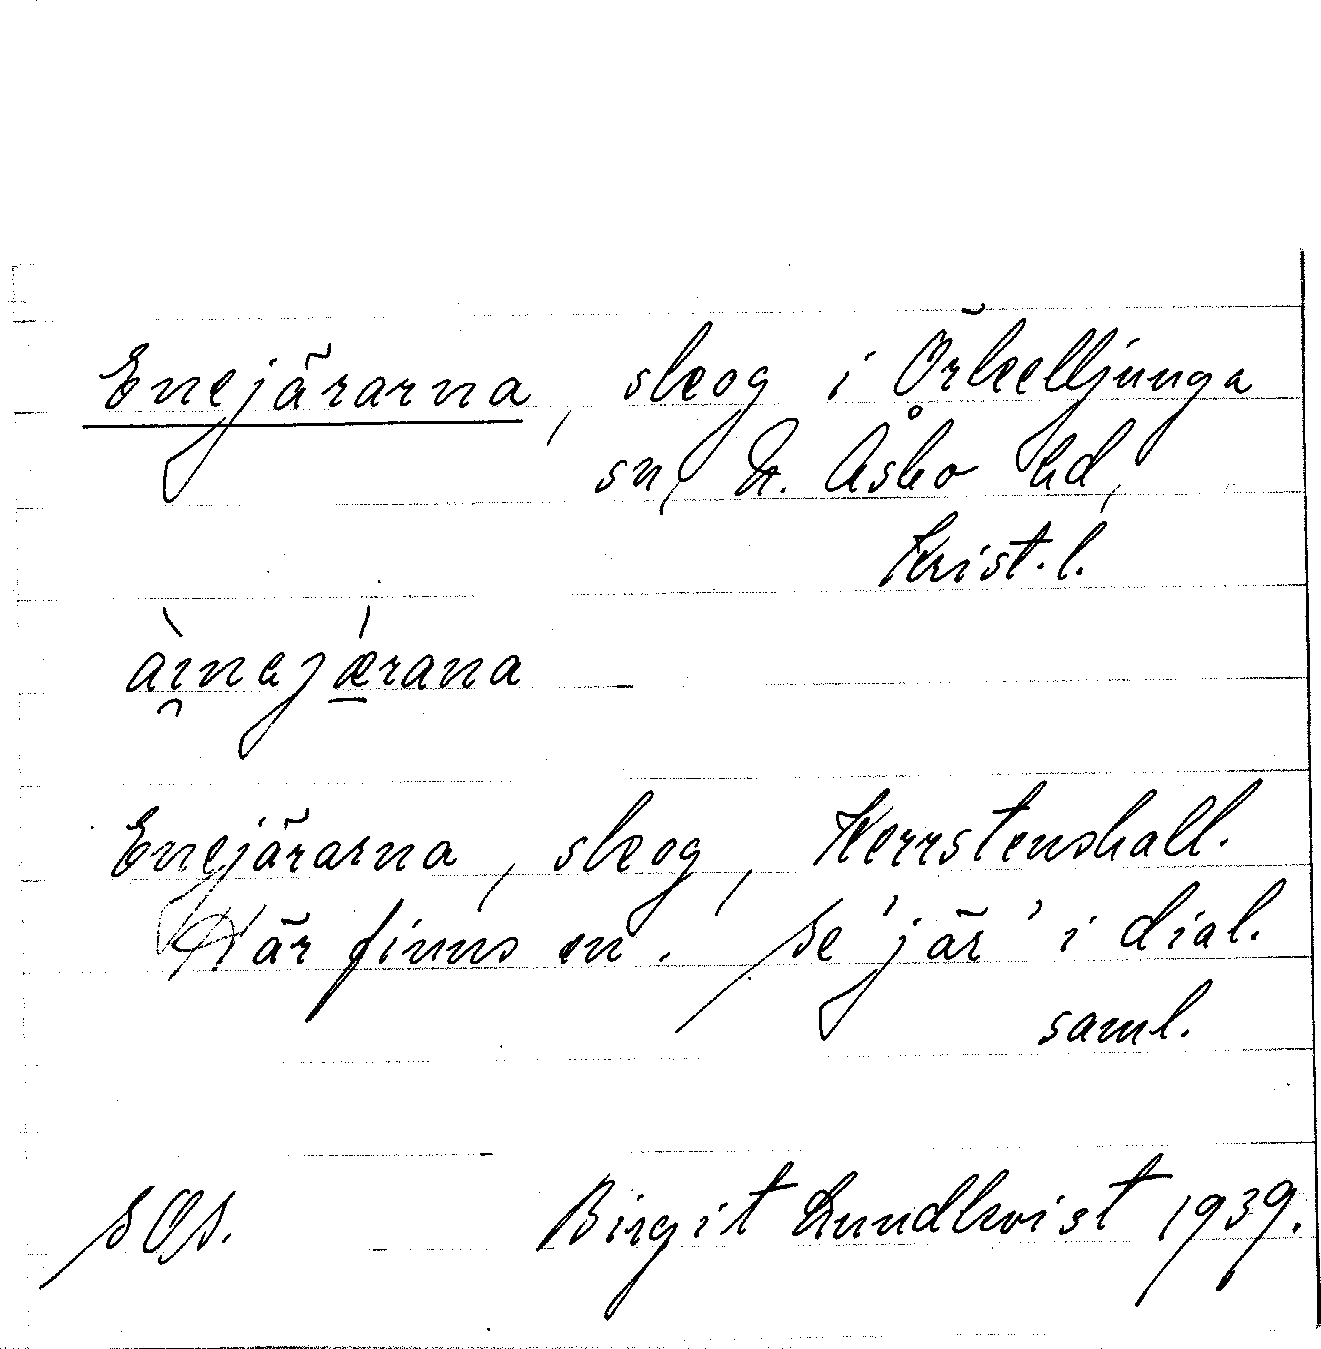 Enejärarna, skog i Örkelljunga
sn, N. Åsbo hd,
Krist. l.
àı̯nəjǽrana
Enejärarna, skog, Kerrstenshall.
Här finns en. Se 'jär' i dial.
saml.
SOS. Birgit Lundkvist 1939.